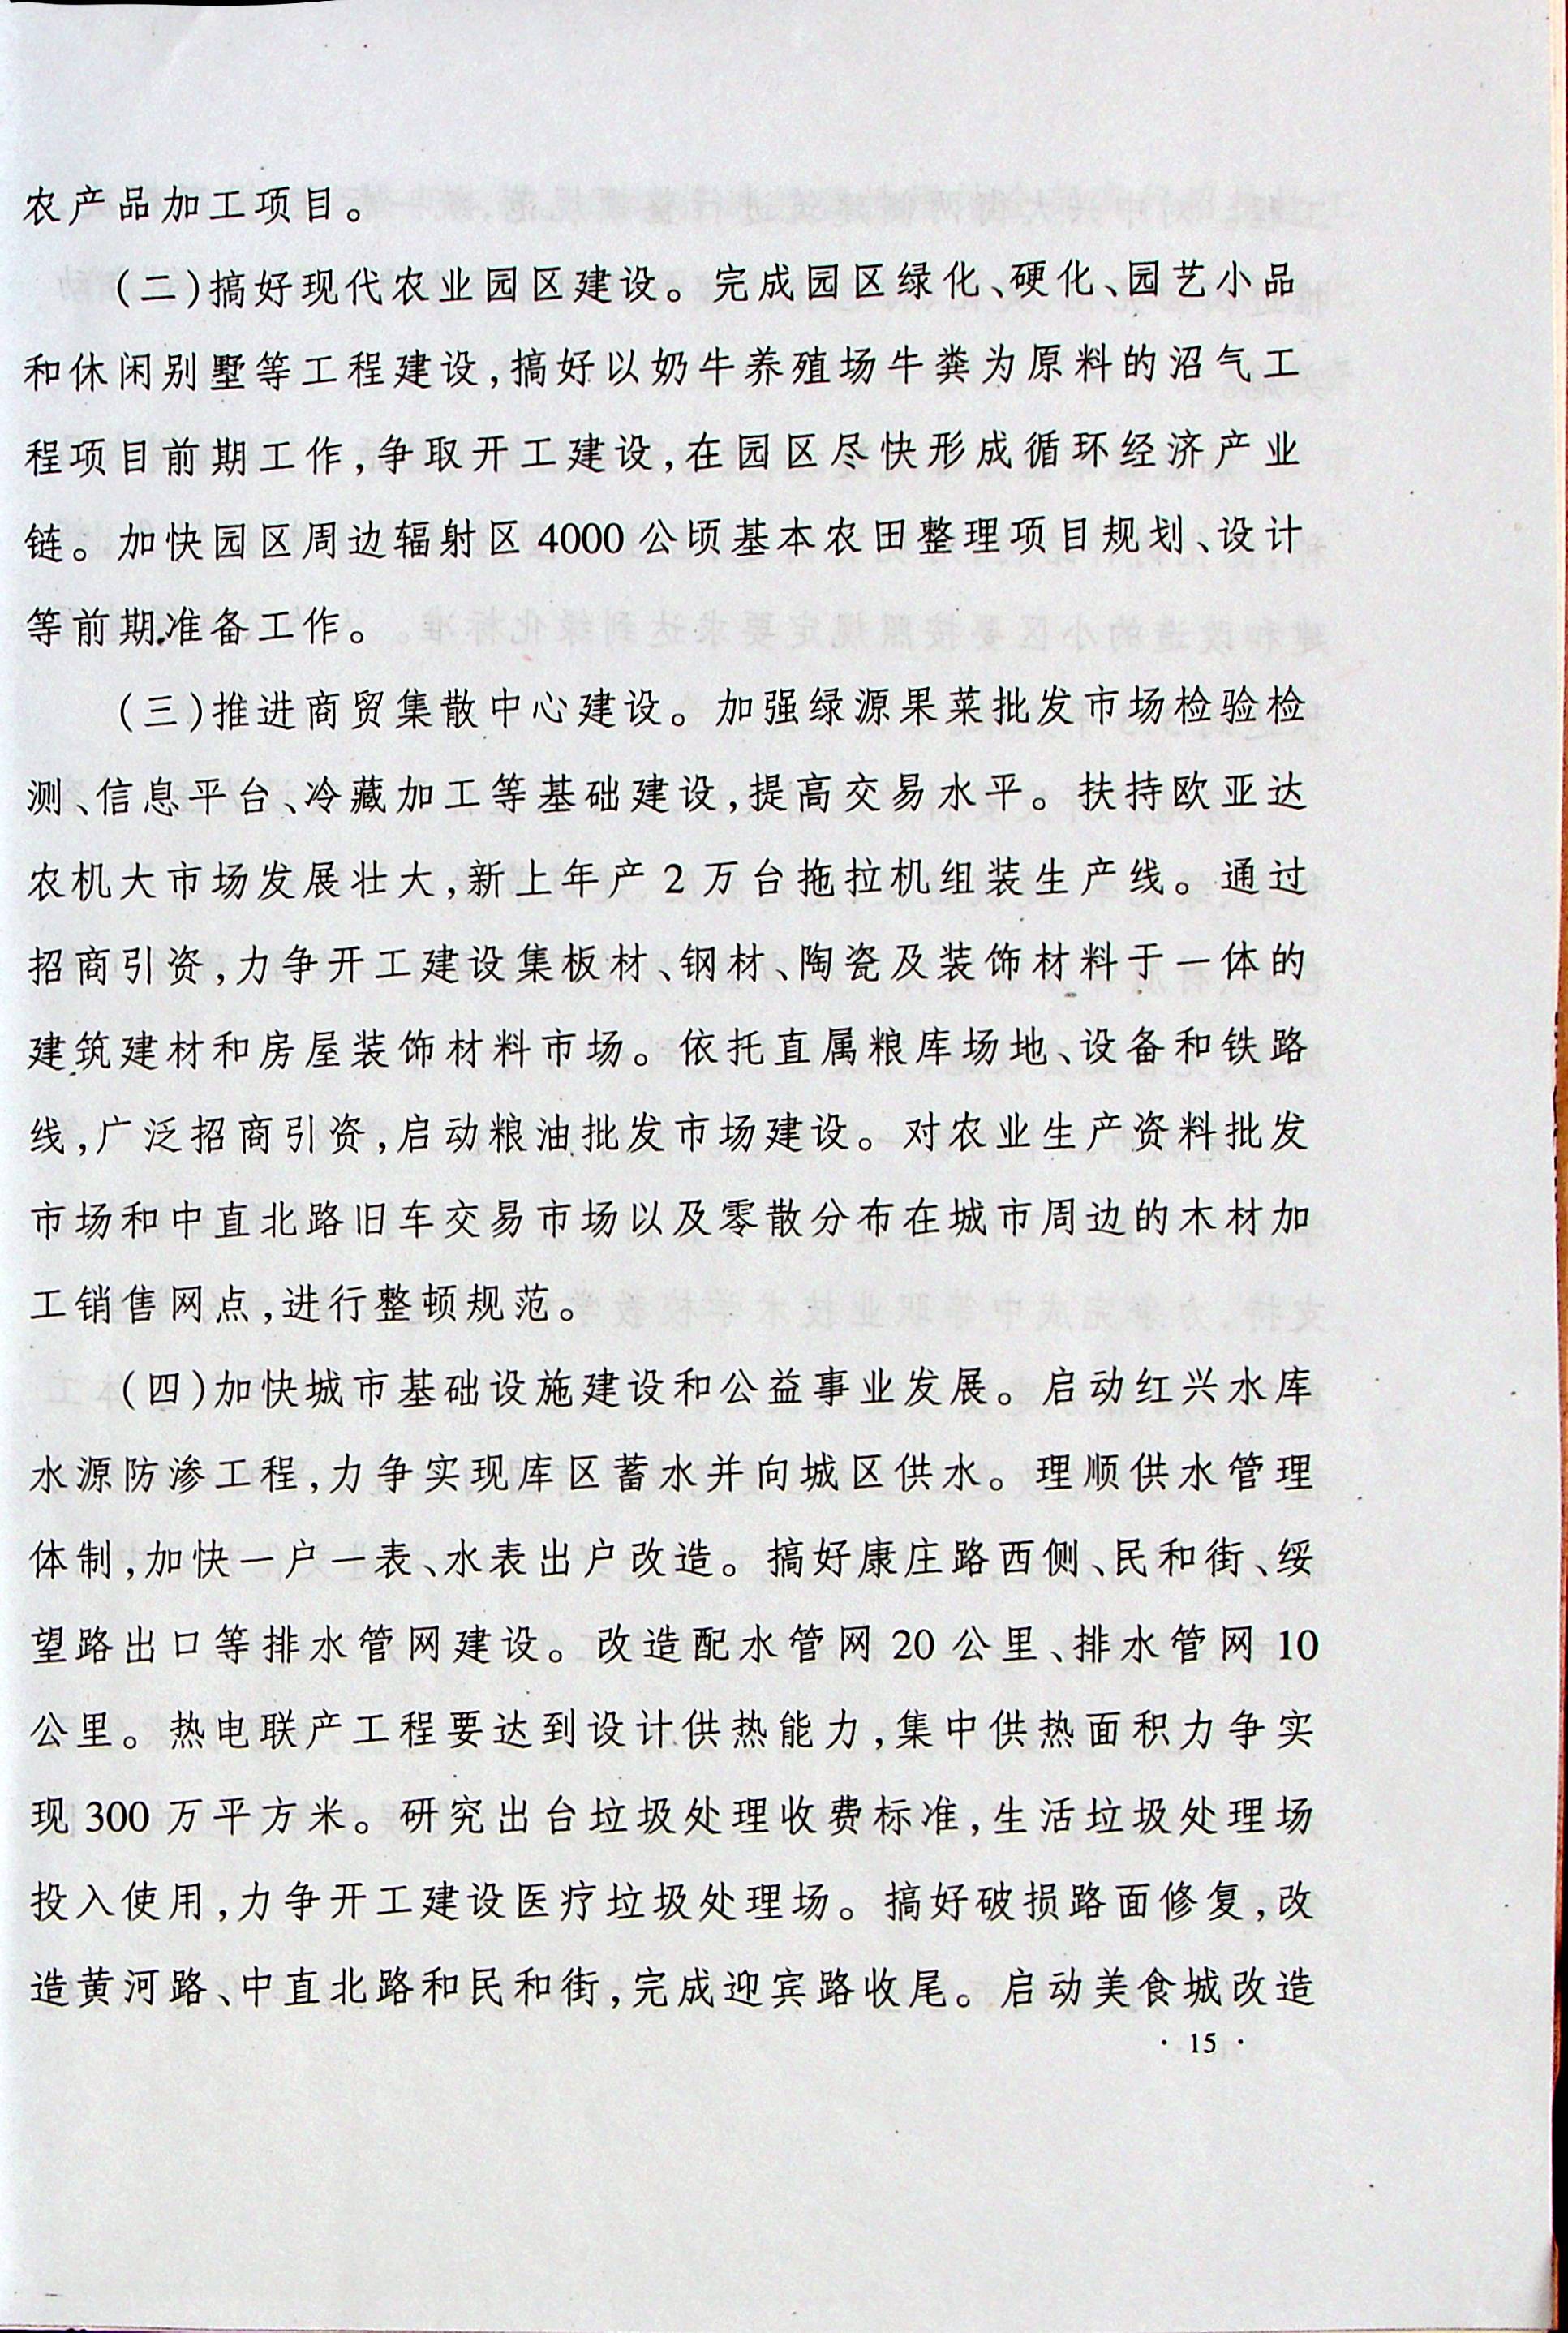 农产品加工项目。
(二)搞好现代农业园区建设。完成园区绿化、硬化、园艺小品
和休闲别墅等工程建设,搞好以奶牛养殖场牛粪为原料的沼气工
程项目前期工作,争取开工建设,在园区尽快形成循环经济产业
链。加快园区周边辐射区4000公顷基本农田整理项目规划、设计
等前期准备工作。
(三)推进商贸集散中心建设。加强绿源果菜批发市场检验检
测、信息平台、冷藏加工等基础建设,提高交易水平。扶持欧亚达
农机大市场发展壮大,新上年产2万台拖拉机组装生产线。通过
招商引资,力争开工建设集板材、钢材、陶瓷及装饰材料于一体的
建筑建材和房屋装饰材料市场。依托直属粮库场地、设备和铁路
线,广泛招商引资,启动粮油批发市场建设。对农业生产资料批发
市场和中直北路旧车交易市场以及零散分布在城市周边的木材加
工销售网点,进行整顿规范。
(四)加快城市基础设施建设和公益事业发展。启动红兴水库
水源防渗工程,力争实现库区蓄水并向城区供水。理顺供水管理
体制,加快一户一表、水表出户改造。搞好康庄路西侧、民和街、绥
望路出口等排水管网建设。改造配水管网20公里、排水管网10
公里。热电联产工程要达到设计供热能力,集中供热面积力争实
现300万平方米。研究出台垃圾处理收费标准,生活垃圾处理场
投入使用,力争开工建设医疗垃圾处理场。搞好破损路面修复,改
造黄河路、中直北路和民和街,完成迎宾路收尾。启动美食城改造
· 15 ·